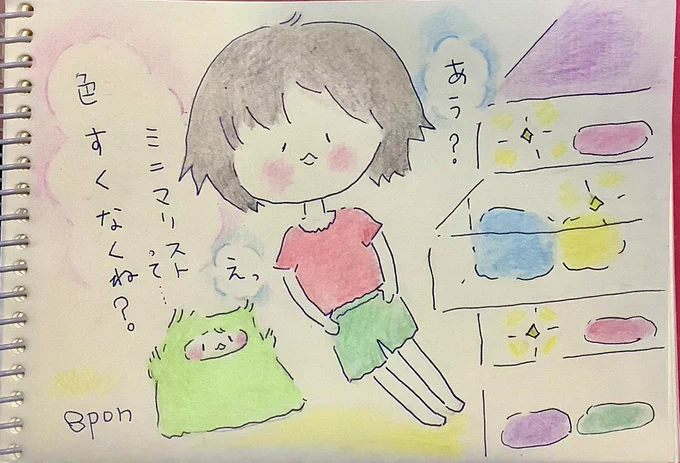 あう?
ミニマリストって…
色すくなくね?。
えっ
8pon